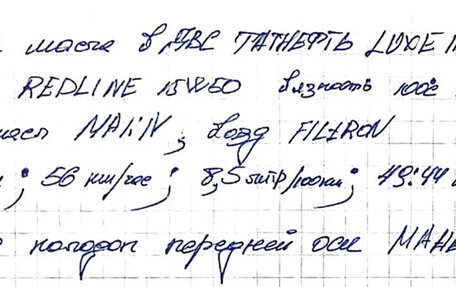 масла в ДВС ТАТНЕФТЬ LUXE
REDLINE 15W50 вязность 100с
масл MANN; возд FILTRON
; 56 км/час; 8,5 литр/100км; 49:44
колодок передней оси